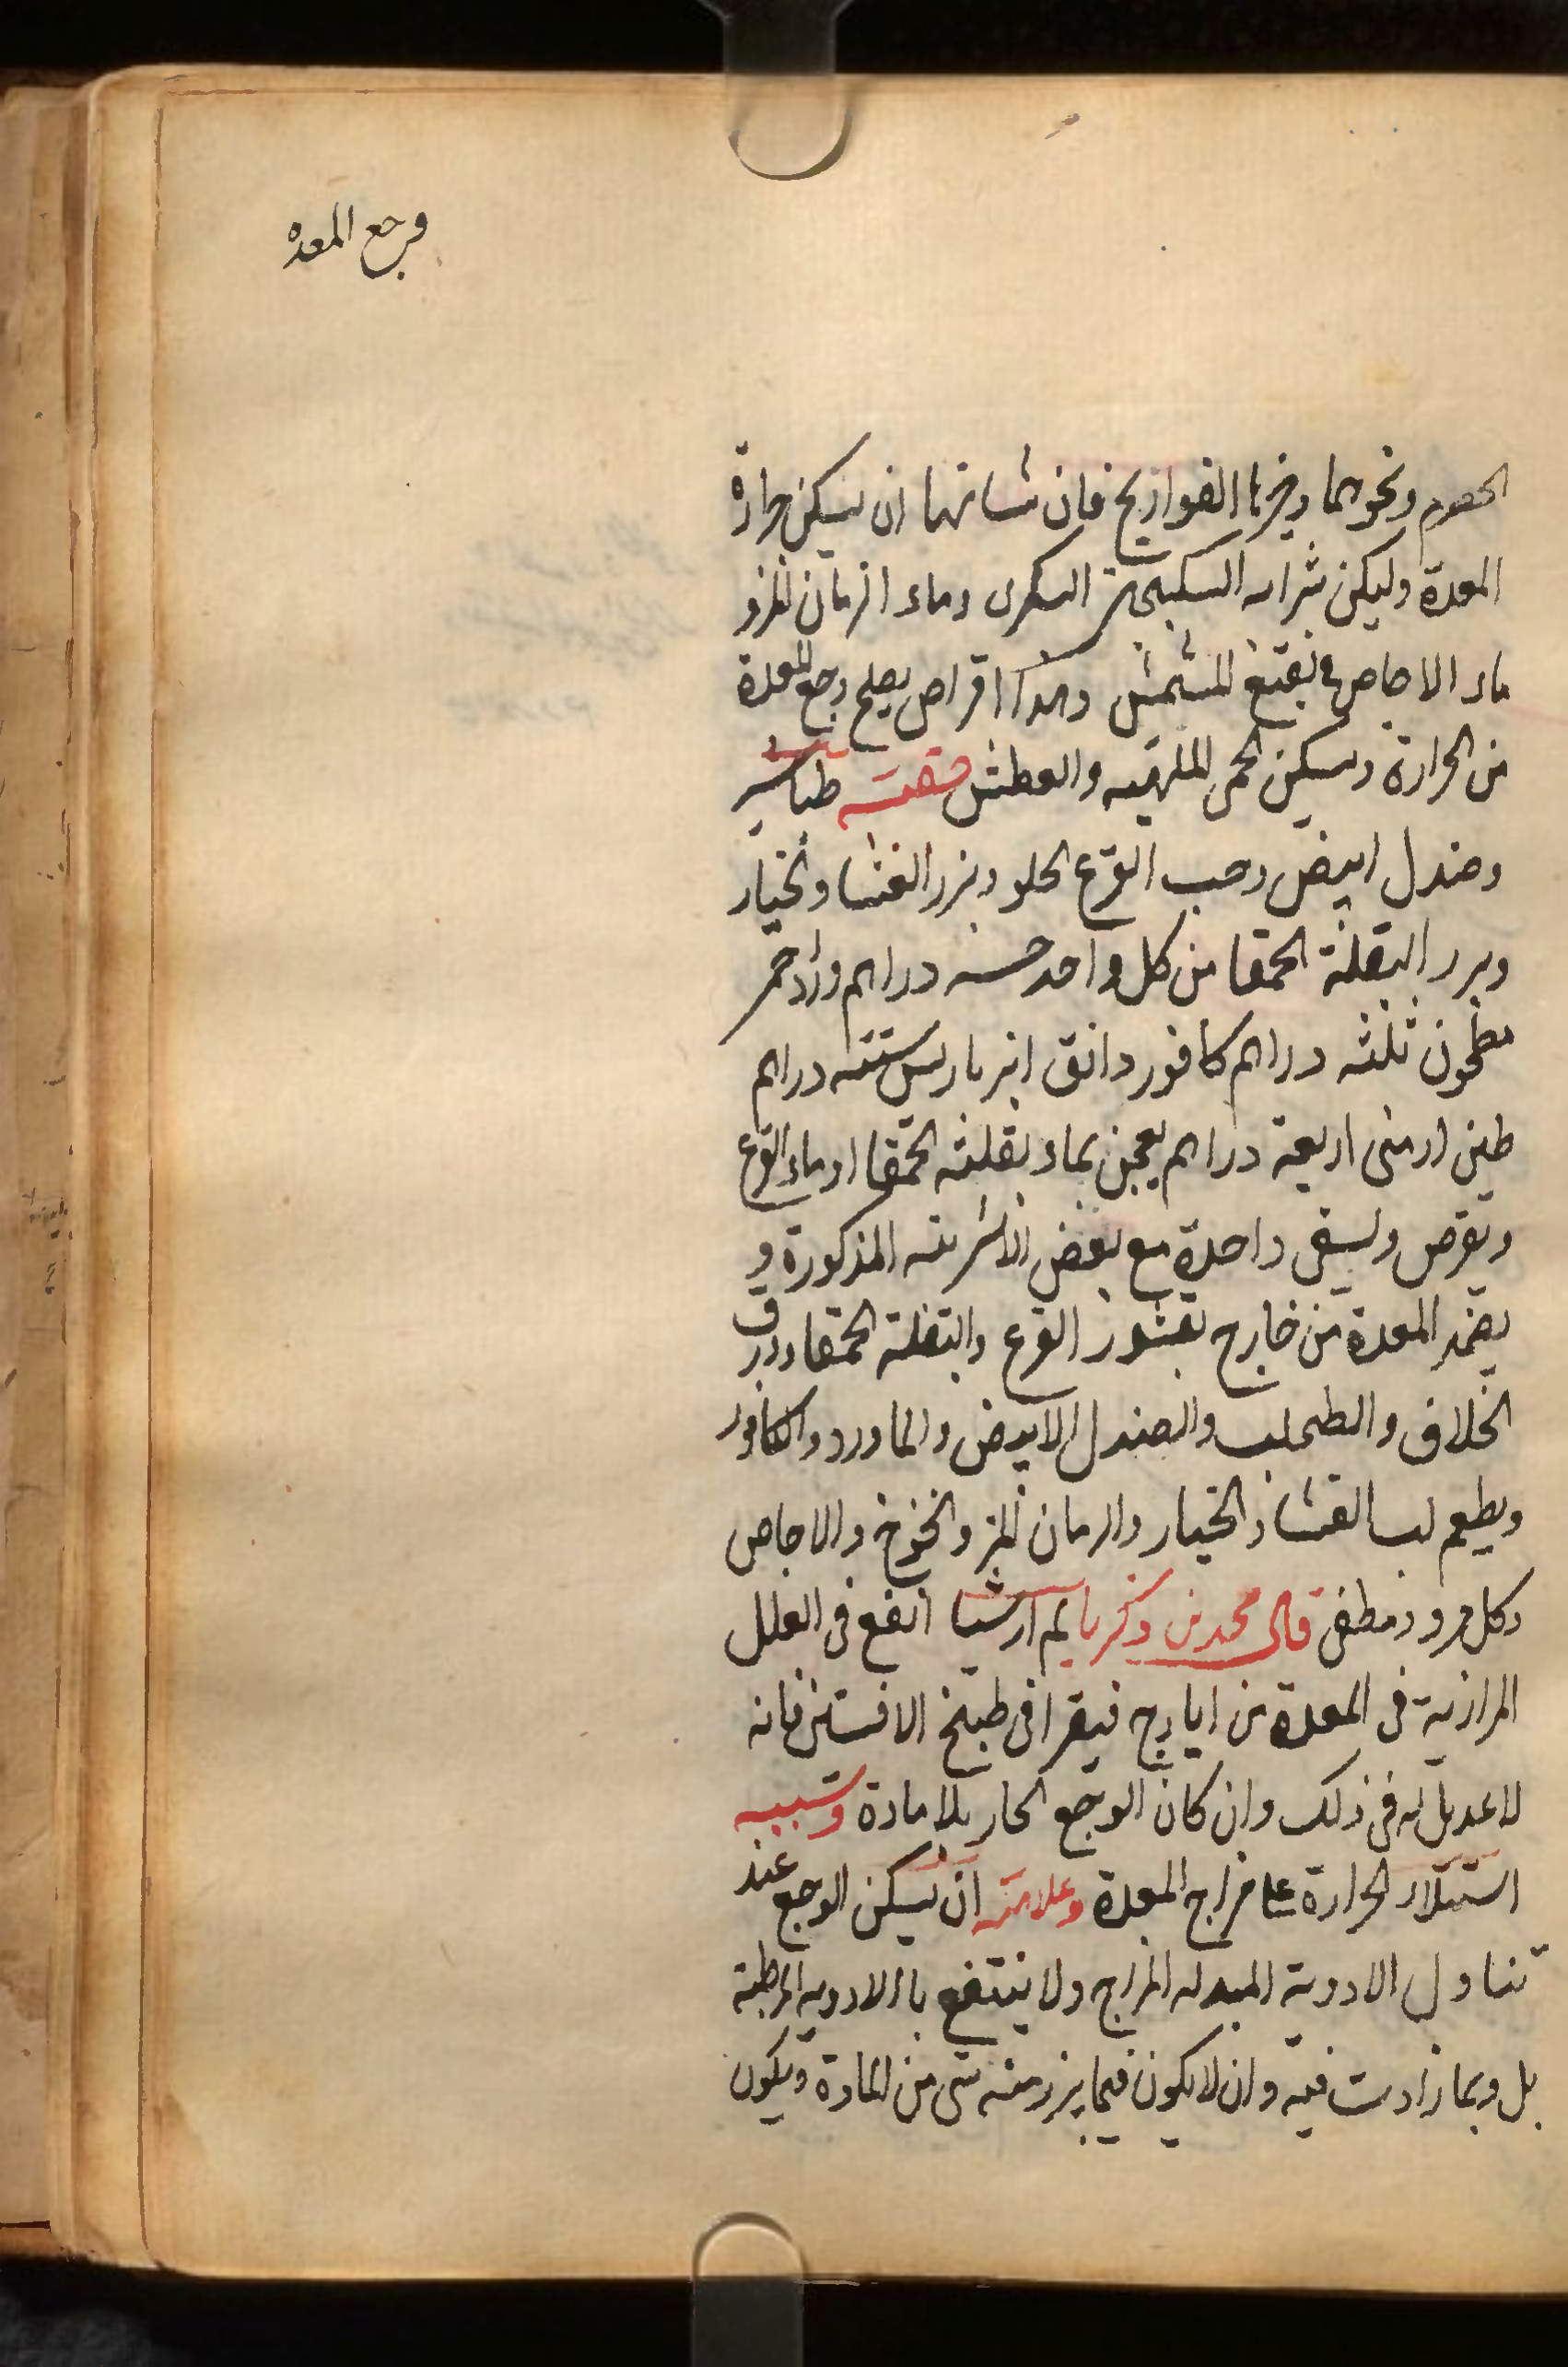 وجع المعده
الحصرم ونحوهما وبخرنا الفراريج فان شانها ان يسكن حرارة
المعدة وليكن شرابه السكنجبين السكرى وماء الرمان المز و
ماء الاجاص ونقيع المشمش وهذا اقراص يصلح وجع المعدة
من الحرارة ويسكن الحمى الملهبه والعطش صفته طباشير
وصندل ابيض وحب القرع الحلو وبزر القثا والخيار
وبزر البقلة الحمقا من كل واحد خمسه دراهم ورد احمر
مطحون ثلثه دراهم كافور دانق انبرباريس ستته دراهم
طين ارمنى اربعة دراهم يعجن بماء بقلة الحمقا او ماء القرع
ويقرص ويسقى واحدة مع بعض الاشربته المذكورة و
يضمد المعدة من خارج بقشور القرع والبقلة الحمقا وورق
الخلاف والطحلب والصندل الابيض والماورد والكافور
ويطعم لب القثا والخيار والرمان المز والخوخ والاجاص
وكل مبرد مطفى قال محمد بن زكريا لم ار شيا انفع فى العلل
المرارية فى المعدة من ايارج فيقرا فى طبيخ الافسنتين فانه
لا عديل له فى ذلك وان كان الوجع الحار بلا مادة وسببه
استيلاء الحرارة على مزاج المعدة وعلامته ان يسكن الوجع عند
تناول الادوية المبدله المزاج ولا ينتفع بالادويه المرطبة
بل وبما زادت فيه وان لا يكون فيما يبرز منه شى من المادة ويكون